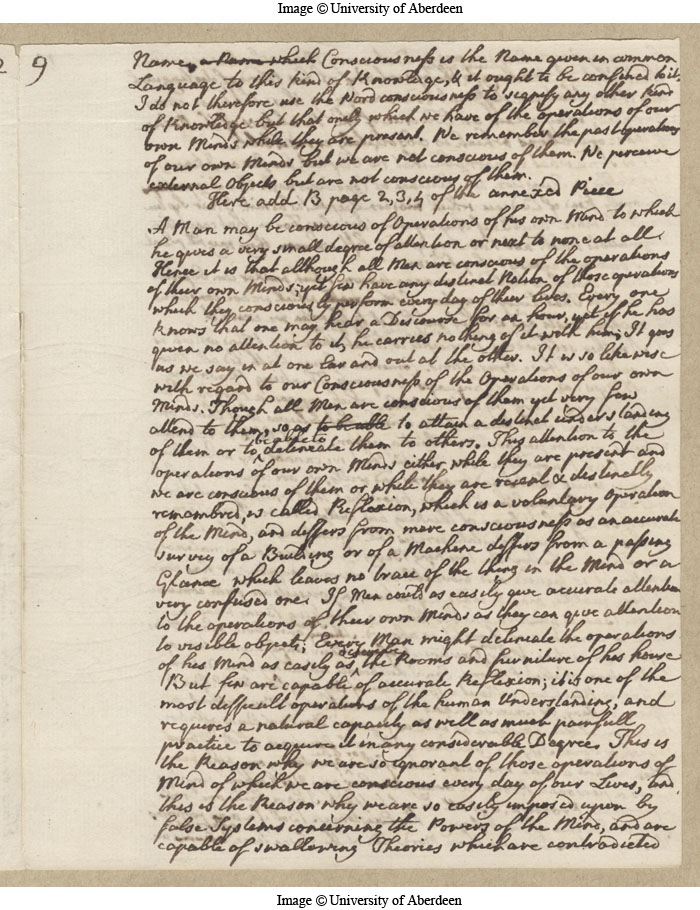 Image © University of Aberdeen
2 9
Name, a Name which Consciousness is the Name given in common
Language to this kind of Knowledge, & it ought to be confined to it.
I do not therefore use the Word consciousness to signify any other kind
of Knowledge but that onely which we have of the operations of our
own Minds while they are present. We remember the past operations
of our own Minds but we are not conscious of them. We perceive
external Objects but are not conscious of them.
Here add B page 2, 3, 4 of the annexed Piece
A Man may be conscious of Operations of his own Mind to which
he gives a very small degree of attention or next to none at all.
Hence it is that although all Men are conscious of the operations
of their own Minds; yet few have any distinct Notion of those operations
which they consciously perform every day of their lives. Every one
knows that one may hear a Discourse for an hour, yet if he has
given no attention to it, he carries nothing of it with him; It goes
as we say in at one Ear and out at the other. It is so likewise
with regard to our Consciousness of the Operations of our own
Minds. Though all Men are conscious of them yet very few
attend to them, so as to be able to attain a distinct understanding
of them or to be able to delineate them to others. This attention to the
operations of our own Minds either while they are present and
we are conscious of them or while they are recent & distinctly
remembred, is called Reflexion, which is a voluntary Operation
of the Mind, and differs from mere consciousness as an accurate
survey of a Building or of a Machine differs from a passing
Glance which leaves no trace of the thing in the Mind or a
very confused one. If Men could as easily give accurate attention
to the operations of their own Minds as they can give attention
to visible objects; Every Man might delineate the operations
of his Mind as easily as the Rooms and furniture of his house
But few are capable of accurate Reflexion; it is one of the
most difficult operations of the human Understanding, and
requires a natural capacity as well as much painfull
practice to acquire it in any considerable Degree. This is
the Reason why we are so ignorant of those operations of
Mind of which we are conscious every day of our Lives, and
this is the Reason why we are so easily imposed upon by
false Systems concerning the Powers of the Mind, and are
capable of swallowing Theories which are contradicted
Image © University of Aberdeen